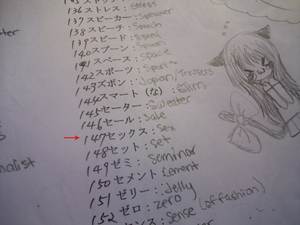 136 ストレス : stress
137 スピーカー : speaker
138 スピーチ : speech
139 スピード : speed
140 スプーン : spoon
141 スペース : space
142 スポーツ : sport
143 ズボン : Japan/Trousers
144 スマート (な) : slim
145 セーター : sweater
146 セール : sale
147 セックス : sex
148 セット : set
149 ゼミ : seminar
150 セメント : cement
151 ゼリー : jelly
152 ゼロ : zero
センス : sense (of fashion)